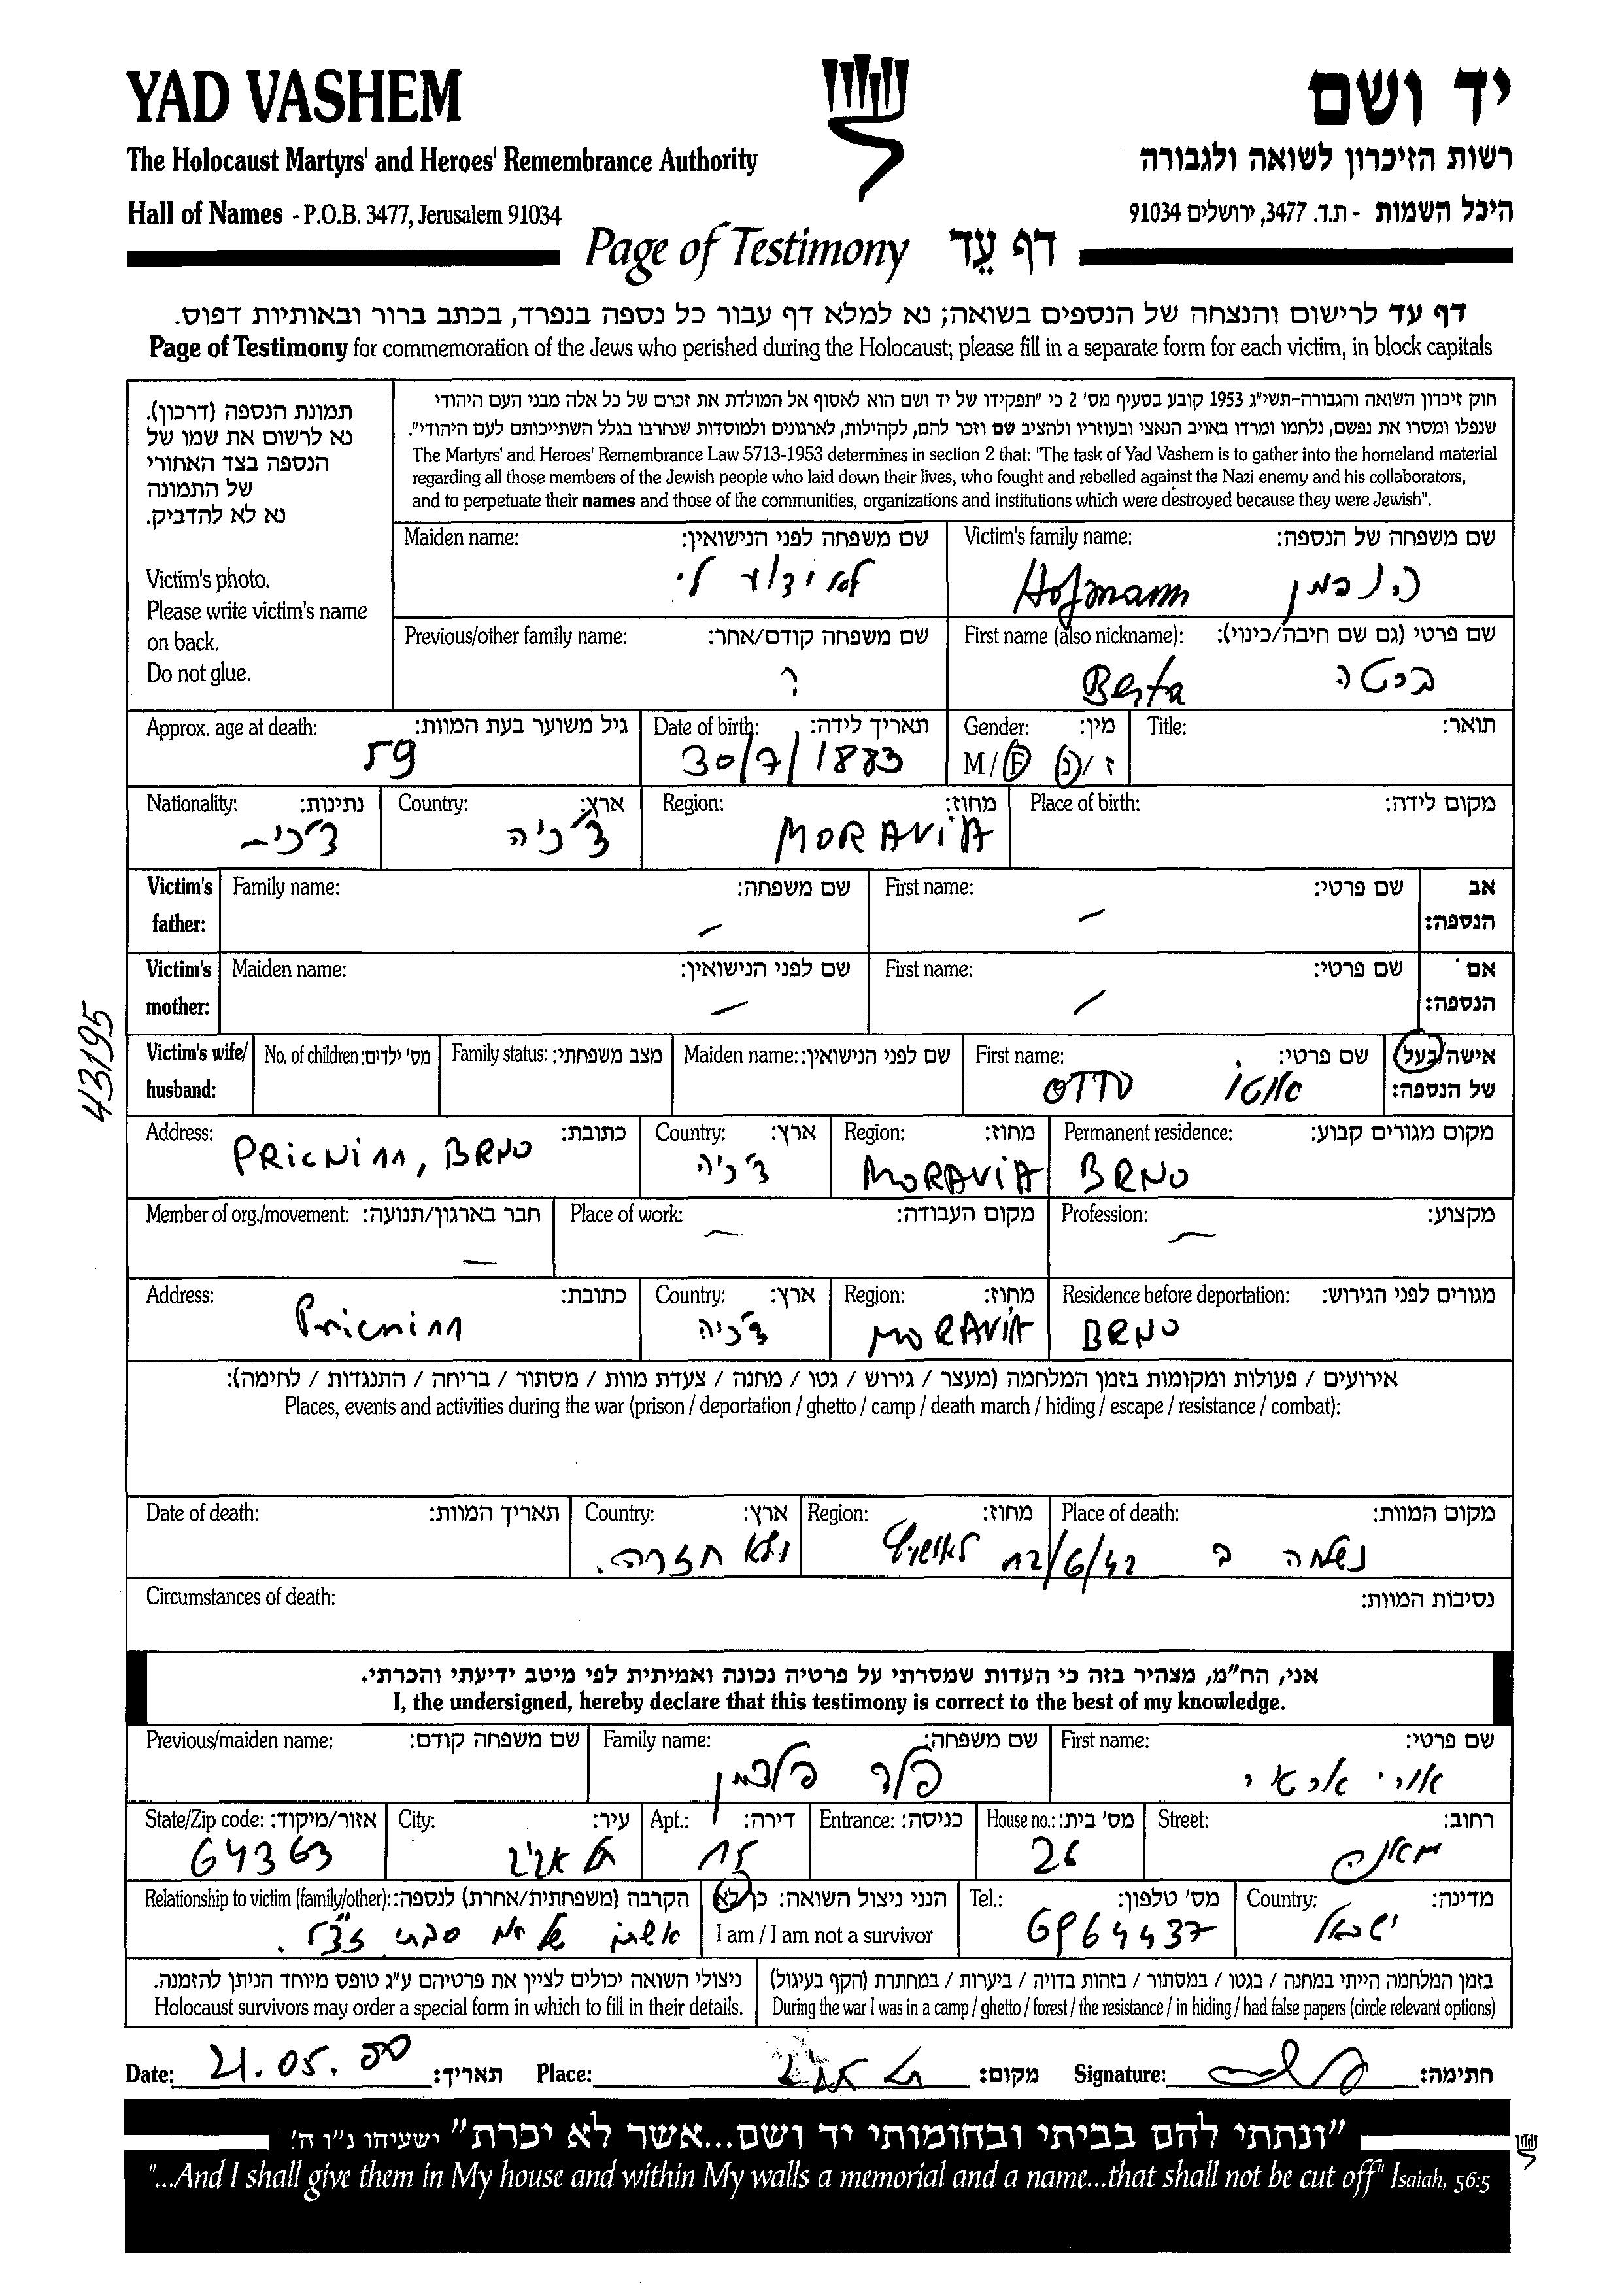 YAD VASHEM
יד ושם
The Holocaust Martyrs' and Heroes' Remembrance Authority
רשות הזיכרון לשואה ולגבורה
Hall of Names - P.O.B. 3477, Jerusalem 91034
היכל השמות - ת.ד. 3477, ירושלים 91034
Page of Testimony דף עֵד
דף עד לרישום והנצחה של הנספים בשואה; נא למלא דף עבור כל נספה בנפרד, בכתב ברור ובאותיות דפוס.
Page of Testimony for commemoration of the Jews who perished during the Holocaust; please fill in a separate form for each victim, in block capitals
תמונת הנספה (דרכון).
נא לרשום את שמו של
הנספה בצד האחורי
של התמונה
נא לא להדביק.
Victim's photo.
Please write victim's name
on back.
Do not glue.
חוק זיכרון השואה והגבורה-תשי"ג 1953 קובע בסעיף מס' 2 כי "תפקידו של יד ושם הוא לאסוף אל המולדת את זכרם של כל אלה מבני העם היהודי
שנפלו ומסרו את נפשם, נלחמו ומרדו באויב הנאצי ובעוזריו ולהציב שם וזכר להם, לקהילות, לארגונים ולמוסדות שנחרבו בגלל השתייכותם לעם היהודי".
The Martyrs' and Heroes' Remembrance Law 5713-1953 determines in section 2 that: "The task of Yad Vashem is to gather into the homeland material
regarding all those members of the Jewish people who laid down their lives, who fought and rebelled against the Nazi enemy and his collaborators,
and to perpetuate their names and those of the communities, organizations and institutions which were destroyed because they were Jewish".
Victim's family name: שם משפחה של הנספה:
Hofmann הופמן
Maiden name: שם משפחה לפני הנישואין:
לא ידוע לי
First name (also nickname): שם פרטי (גם שם חיבה/כינוי):
Berta ברטה
Previous/other family name: שם משפחה קודם/אחר:
?
Title: תואר:
Gender: מין:
M / F ז / נ
Date of birth: תאריך לידה:
30/7/1883
Approx. age at death: גיל משוער בעת המוות:
59
Place of birth: מקום לידה:
Region: מחוז:
MORAVIA
Country: ארץ:
צ'כיה
Nationality: נתינות:
צ'כית
Victim's father: אב הנספה:
First name: שם פרטי:
—
Family name: שם משפחה:
—
Victim's mother: אם הנספה:
First name: שם פרטי:
—
Maiden name: שם לפני הנישואין:
—
Victim's wife/ husband: אישה/בעל של הנספה:
First name: שם פרטי:
OTTO אוטו
Maiden name: שם לפני הנישואין:
Family status: מצב משפחתי:
No. of children: מס' ילדים:
Permanent residence: מקום מגורים קבוע:
BRNO
Region: מחוז:
MORAVIA
Country: ארץ:
צ'כיה
Address: כתובת:
PRICNI 11, BRNO
Profession: מקצוע:
—
Place of work: מקום העבודה:
—
Member of org./movement: חבר בארגון/תנועה:
—
Residence before deportation: מגורים לפני הגירוש:
BRNO
Region: מחוז:
MORAVIA
Country: ארץ:
צ'כיה
Address: כתובת:
Pricni 11
אירועים / פעולות ומקומות בזמן המלחמה (מעצר / גירוש / גטו / מחנה / צעדת מוות / מסתור / בריחה / התנגדות / לחימה):
Places, events and activities during the war (prison / deportation / ghetto / camp / death march / hiding / escape / resistance / combat):
Place of death: מקום המוות:
Region: מחוז:
Country: ארץ:
Date of death: תאריך המוות:
נשלחה ב 12/6/42 לאושוויץ ולא חזרה.
Circumstances of death: נסיבות המוות:
אני, הח"מ, מצהיר בזה כי העדות שמסרתי על פרטיה נכונה ואמיתית לפי מיטב ידיעתי והכרתי.
I, the undersigned, hereby declare that this testimony is correct to the best of my knowledge.
First name: שם פרטי:
Family name: שם משפחה:
פלד פלדמן
Previous/maiden name: שם משפחה קודם:
Street: רחוב:
מאנה
House no.: מס' בית:
26
Entrance: כניסה:
Apt.: דירה:
15
City: עיר:
תל אביב
State/Zip code: אזור/מיקוד:
64363
Country: מדינה:
ישראל
Tel.: מס' טלפון:
6964437
הנני ניצול השואה: כן/לא
I am / I am not a survivor
Relationship to victim (family/other): הקרבה (משפחתית/אחרת) לנספה:
של סבתי ז"ל.
בזמן המלחמה הייתי במחנה / בגטו / במסתור / בזהות בדויה / ביערות / במחתרת (הקף בעיגול)
During the war I was in a camp / ghetto / forest / the resistance / in hiding / had false papers (circle relevant options)
ניצולי השואה יכולים לציין את פרטיהם ע"ג טופס מיוחד הניתן להזמנה.
Holocaust survivors may order a special form in which to fill in their details.
Date: 21.05.00 תאריך: Place: תל אביב מקום: Signature: חתימה:
"ונתתי להם בביתי ובחומותי יד ושם...אשר לא יכרת" ישעיהו נ"ו ה'
"...And I shall give them in My house and within My walls a memorial and a name...that shall not be cut off" Isaiah, 56:5
43195